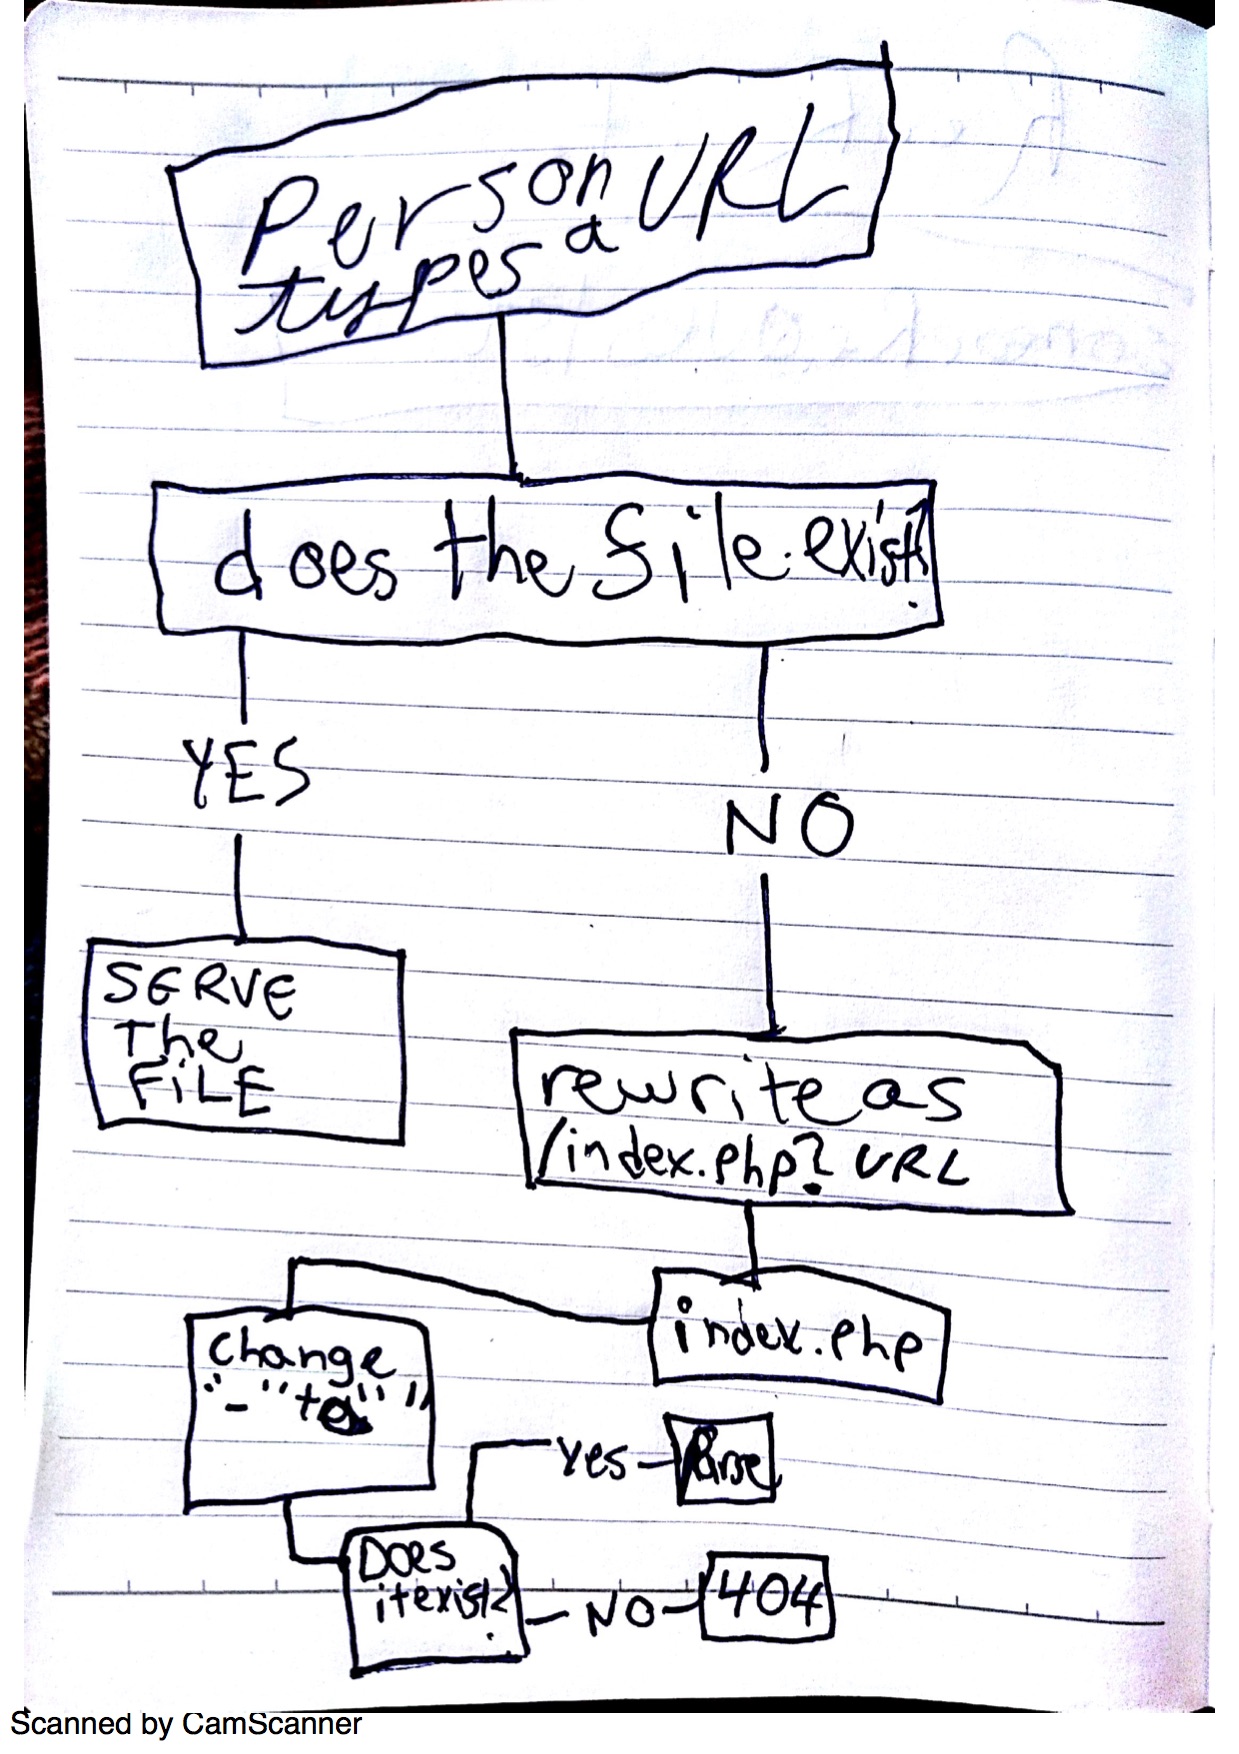 Person URL
types a
does the file exist?
YES
NO
SERVE
The
FiLE
rewrite as
/index.php? URL
index.php
Change
"-" to " "
Yes
Parse
Does
it exist?
NO
404
Scanned by CamScanner